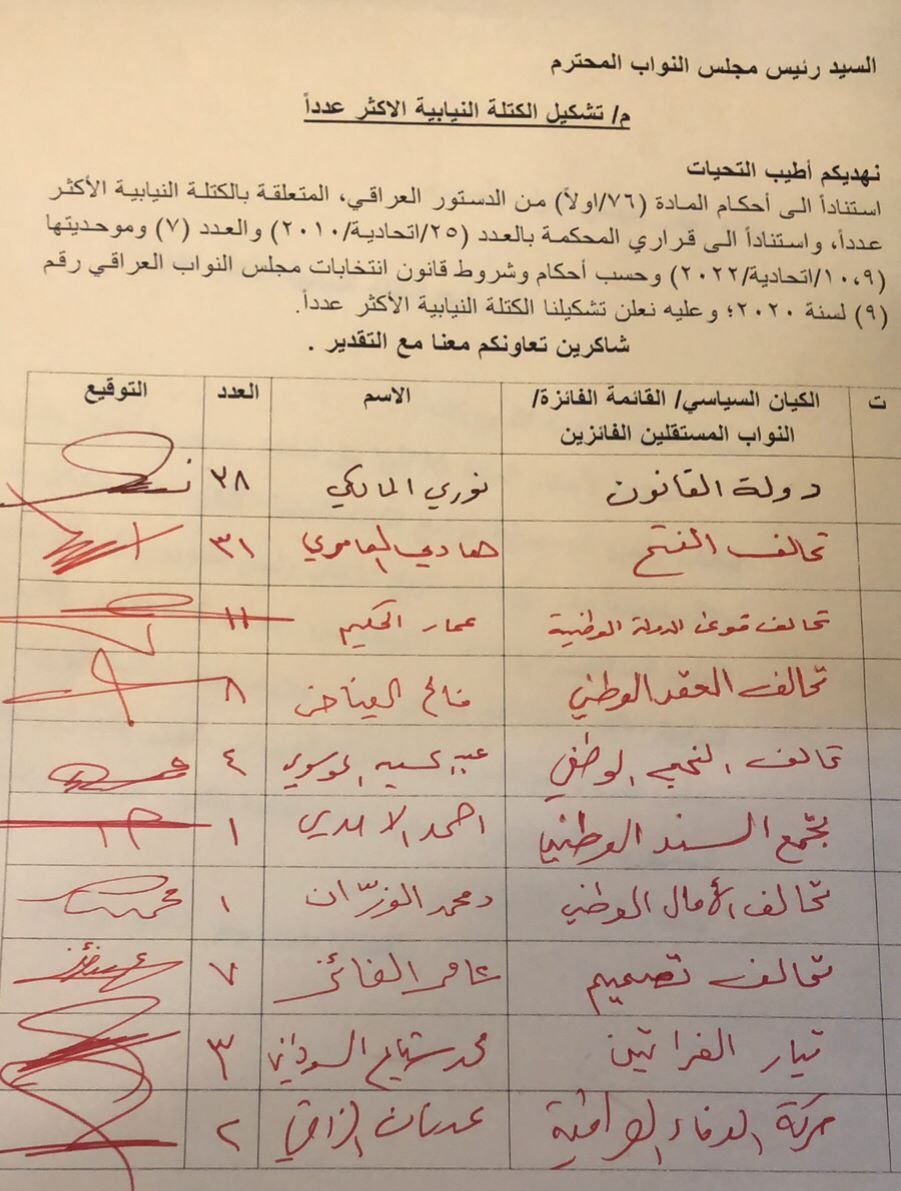 السيد رئيس مجلس النواب المحترم
م/ تشكيل الكتلة النيابية الاكثر عدداً
نهديكم أطيب التحيات
استناداً الى أحكام المادة (٧٦/اولاً) من الدستور العراقي، المتعلقة بالكتلة النيابية الأكثر
عدداً، واستناداً الى قراري المحكمة بالعدد (٢٥/اتحادية/٢٠١٠) والعدد (٧) وموحديتها
(٩،١٠/اتحادية/٢٠٢٢) وحسب أحكام وشروط قانون انتخابات مجلس النواب العراقي رقم
(٩) لسنة ٢٠٢٠؛ وعليه نعلن تشكيلنا الكتلة النيابية الأكثر عدداً.
شاكرين تعاونكم معنا مع التقدير .
ت الكيان السياسي/ القائمة الفائزة/ الاسم العدد التوقيع
النواب المستقلين الفائزين
دولة القانون نوري المالكي ٣٨
تحالف الفتح هادي العامري ٣١
تحالف قوى الدولة الوطنية عمار الحكيم ١١
تحالف العقد الوطني فالح الفياض ٨
تحالف النهج الوطني عبد الحسين الموسوي ٤
تجمع السند الوطني احمد الاسدي ١
تحالف الأمال الوطني د محمد ١
تحالف تصميم عامر الفائز ٧
تيار الفراتين محمد شياع السوداني ٣
حركة الوفاء العراقية عدنان الزرفي ٢